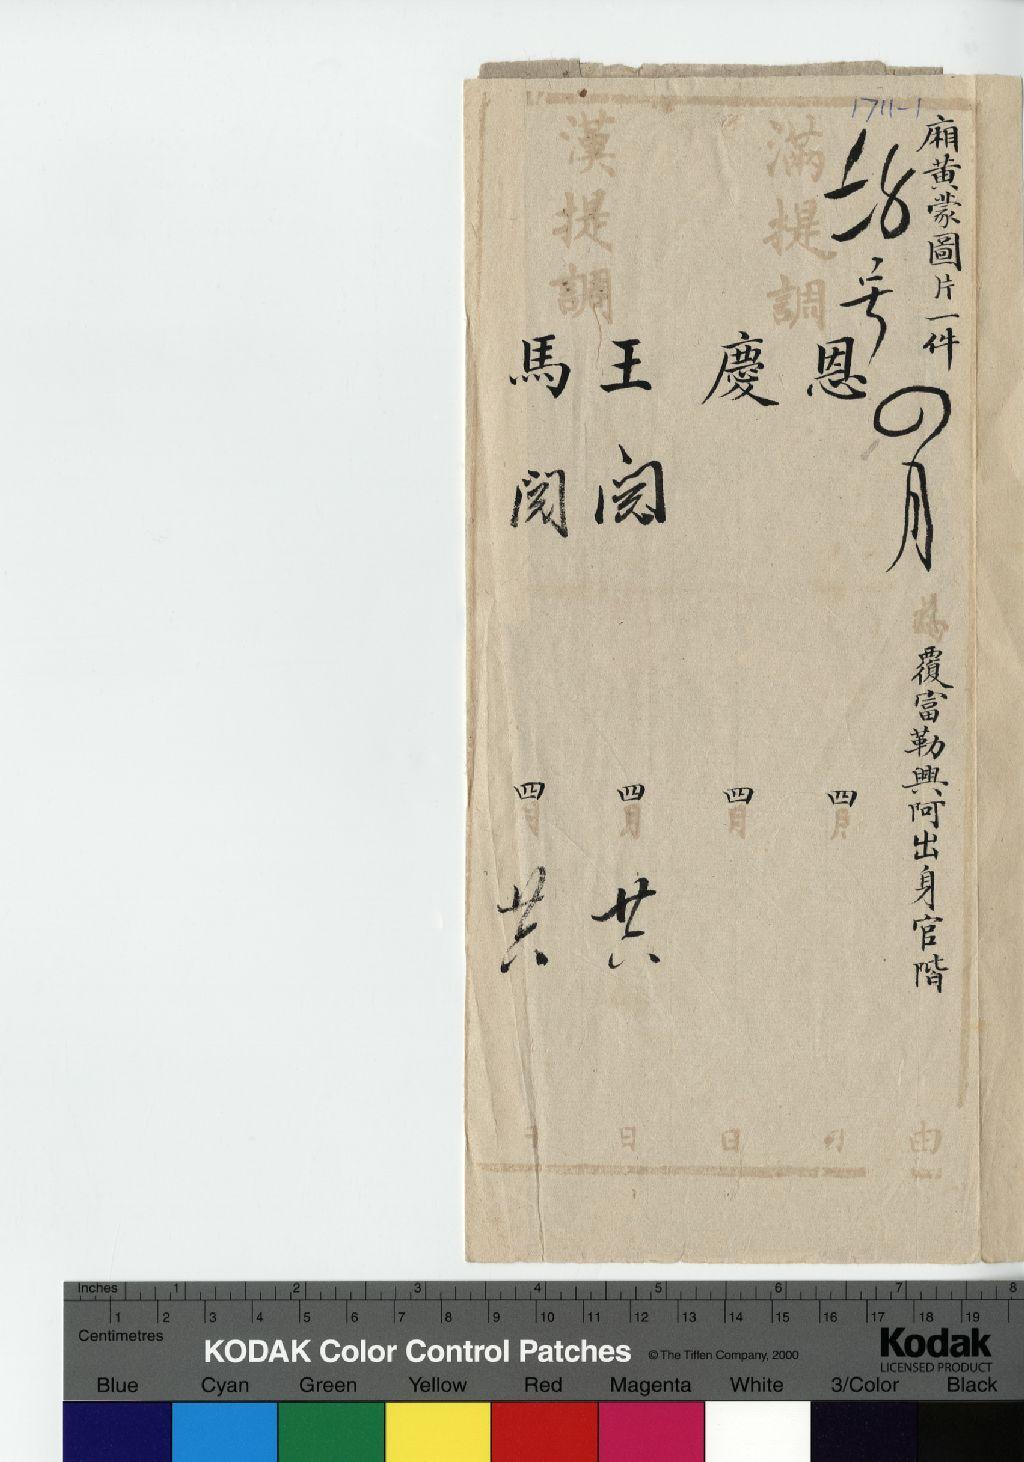 1711-1
廂黃蒙圖片一件
号
四月
為
覆富勒興阿出身官階
由
滿提調
恩
四月
日
慶
四月
日
漢提調
王 閱
四月
廿六
日
馬 閱
四月
廿六
日
Inches 1 2 3 4 5 6 7 8
1 2 3 4 5 6 7 8 9 10 11 12 13 14 15 16 17 18 19
Centimetres
KODAK Color Control Patches © The Tiffen Company, 2000
Kodak
LICENSED PRODUCT
Blue Cyan Green Yellow Red Magenta White 3/Color Black